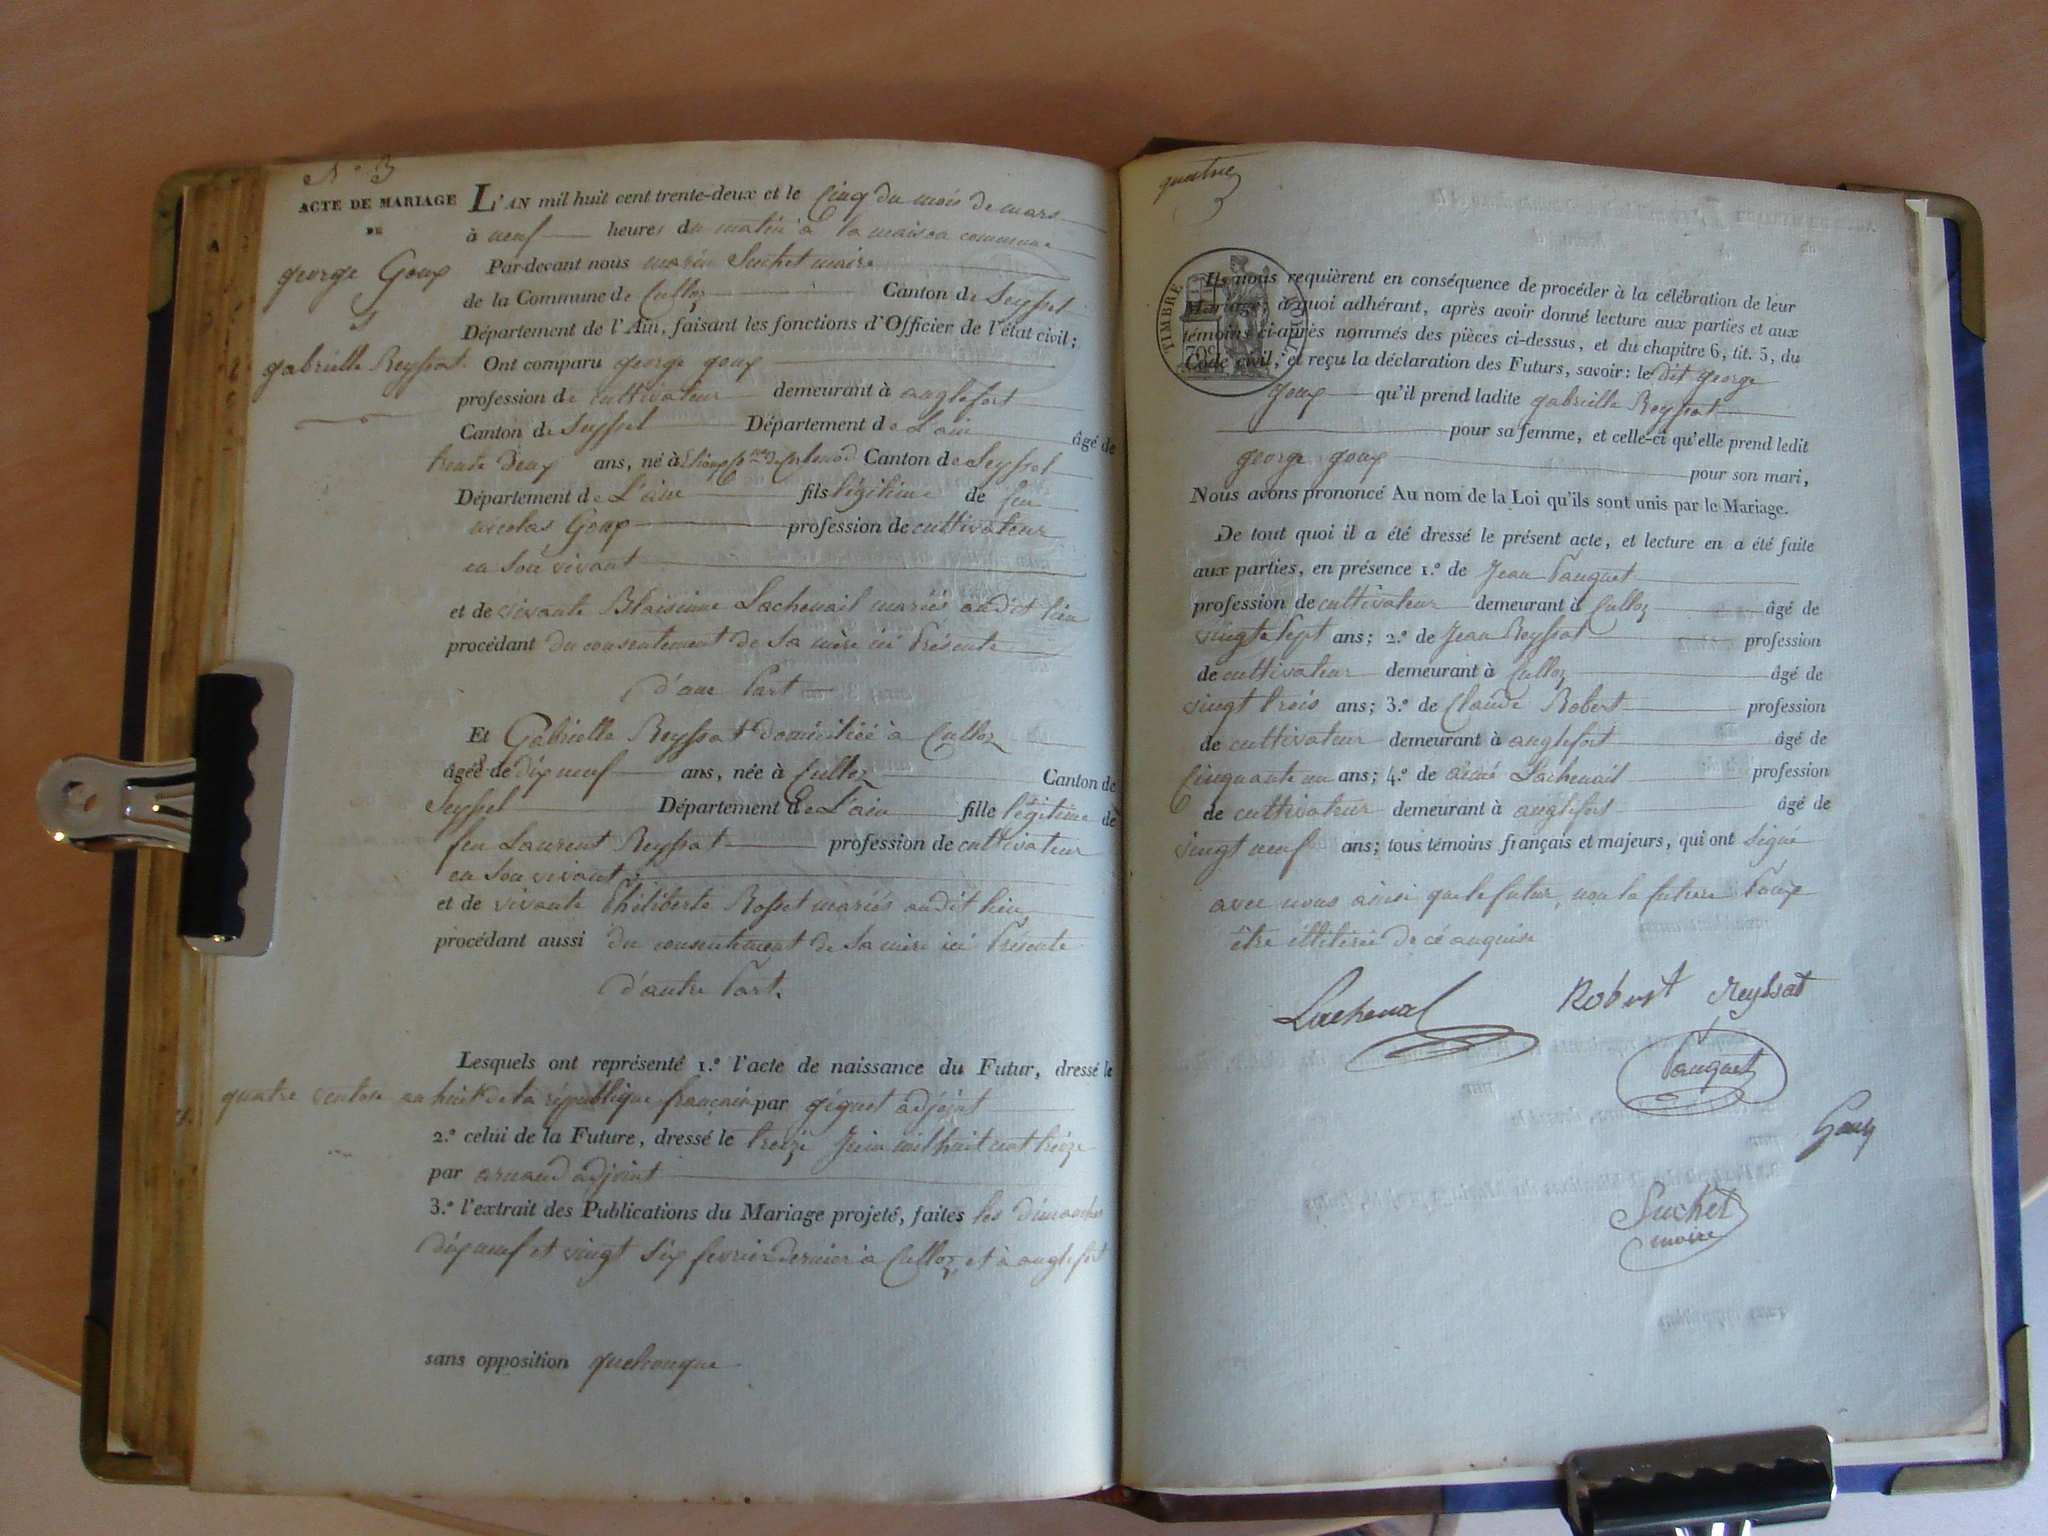 N.° 3
ACTE DE MARIAGE
DE
george Goux
&
gabrielle Reyssat
L'AN mil huit cent trente-deux et le cinq du mois de mars
à neuf heures du matin à la maison commune
Par-devant nous marin Suchet maire
de la Commune de Culloz Canton de Seyssel
Département de l'Ain, faisant les fonctions d'Officier de l'état civil;
Ont comparu george goux
profession de cultivateur demeurant à anglefort
Canton de Seyssel Département de L'ain âgé de
trente deux ans, né à Canton de Seyssel
Département de L'ain fils légitime de feu
nicolas Goux profession de cultivateur
en son vivant
et de vivante Blaisinne Lachenail mariés audit lieu
procédant du consentement de sa mère ici Présente
d'une Part
Et Gabrielle Reyssat domiciliée à Culloz
âgée de dix neuf ans, née à Culloz Canton de
Seyssel Département de L'ain fille légitime de
feu Laurent Reyssat profession de cultivateur
en son vivant
et de vivante Philiberte Rosset mariés audit lieu
procédant aussi du consentement de sa mère ici Présente
d'autre Part.
Lesquels ont représenté 1.° l'acte de naissance du Futur, dressé le
quatre ventose an huit de la république française par giguet adjoint
2.° celui de la Future, dressé le treize Juin mil huit cent treize
par arnaud adjoint
3.° l'extrait des Publications du Mariage projeté, faites les dimanches
dix neuf et vingt six fevrier dernier à Culloz et à anglefort
sans opposition quelconque
quatre
TIMBRE
Ils nous requièrent en conséquence de procéder à la célébration de leur
Mariage; à quoi adhérant, après avoir donné lecture aux parties et aux
témoins ci-après nommés des pièces ci-dessus, et du chapitre 6, tit. 5, du
Code civil; et reçu la déclaration des Futurs, savoir: le dit george
goux qu'il prend ladite gabrielle Reyssat
pour sa femme, et celle-ci qu'elle prend ledit
george goux pour son mari,
Nous avons prononcé Au nom de la Loi qu'ils sont unis par le Mariage.
De tout quoi il a été dressé le présent acte, et lecture en a été faite
aux parties, en présence 1.° de Jean Pauguet
profession de cultivateur demeurant à Culloz âgé de
vingt Sept ans; 2.° de Jean Reyssat profession
de cultivateur demeurant à Culloz âgé de
vingt trois ans; 3.° de Claude Robert profession
de cultivateur demeurant à anglefort âgé de
Cinquante un ans; 4.° de aimé Lachenail profession
de cultivateur demeurant à anglefort âgé de
vingt neuf ans; tous témoins français et majeurs, qui ont signé
avec nous ainsi que le futur, non la future Pour
être illitérée de ce enquise
Lachenal Robert Reyssat
Pauguet
Goux
Suchet
maire